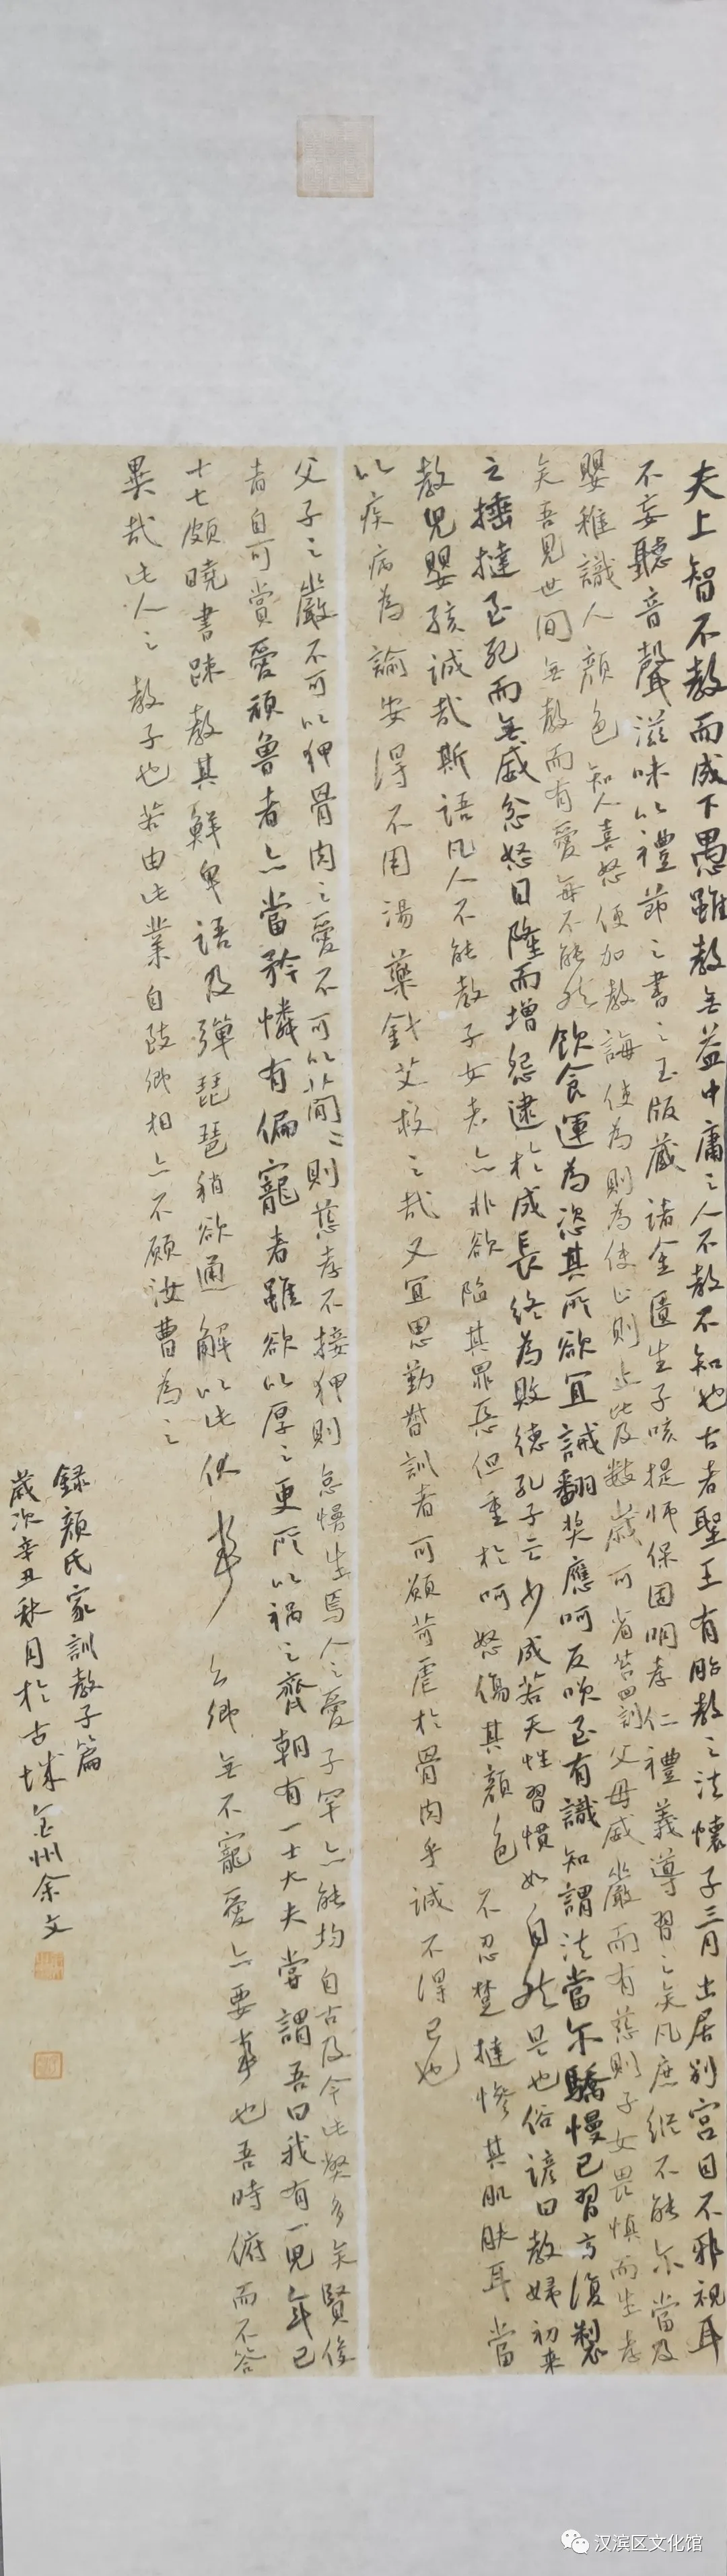 夫上智不教而成下愚雖教無益中庸之人不教不知也古者聖王有胎教之法懷子三月出居別宮目不邪視耳
不妄聽音聲滋味以禮節之書之玉版藏諸金匱生子咳提師保固明孝仁禮義導習之矣凡庶縱不能尔當及
嬰稚識人顏色知人喜怒便加教誨使為則為使止則止比及數歲可省笞罰父母威嚴而有慈則子女畏慎而生孝
矣吾見世間無教而有愛每不能然飲食運為恣其所欲宜誡翻奖應呵反唉至有識知謂法當尔驕慢已習方復製
之捶撻至死而無威忿怒日隆而增怨逮於成長終為敗德孔子云少成若天性習慣如自然是也俗諺曰教婦初来
教兒嬰孩誠哉斯語凡人不能教子女者亦非欲陷其罪惡但重於呵怒傷其顏色不忍楚撻慘其肌膚耳當
以疾病為諭安得不用湯藥針艾救之哉又宜思勤督訓者可願苛虐於骨肉乎誠不得已也
父子之嚴不可以狎骨肉之愛不可以簡〻則慈孝不接狎則怠慢生焉人之愛子罕亦能均自古及今此弊多矣賢俊
者自可賞愛頑魯者亦當矜憐有偏寵者雖欲以厚之更所以禍之齊朝有一士大夫嘗謂吾曰我有一兒年已
十七頗曉書疎教其鮮卑語及彈琵琶稍欲通解以此伏事公卿無不寵愛亦要事也吾時俯而不答
異哉此人之教子也若由此業自致卿相亦不願汝曹為之
録顏氏家訓教子篇
歲次辛丑秋月於古城金州余文
汉滨区文化馆